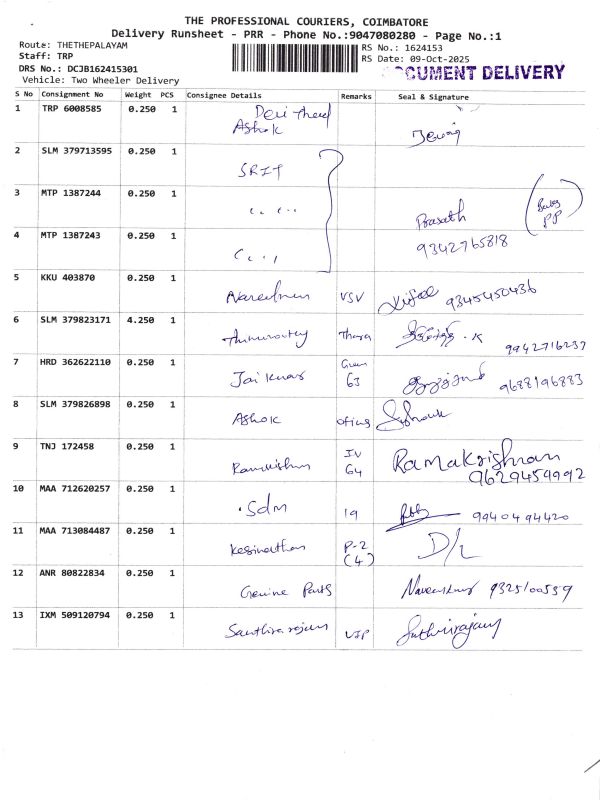 THE PROFESSIONAL COURIERS, COIMBATORE
Delivery Runsheet - PRR - Phone No.:9047080280 - Page No.:1
Route: THETHEPALAYAM
RS No.: 1624153
Staff: TRP
RS Date: 09-Oct-2025
DRS No.: DCJB162415301
CUMENT DELIVERY
Vehicle: Two Wheeler Delivery
S No Consignment No Weight PCS Consignee Details Remarks Seal & Signature
1 TRP 6008585 0.250 1
Ashok
2 SLM 379713595 0.250 1 SRIT
3 MTP 1387244 0.250 1 Prasath
4 MTP 1387243 0.250 1 9342765818
5 KKU 403870 0.250 1 VSV 9345450436
6 SLM 379823171 4.250 1 9942716237
7 HRD 362622110 0.250 1 Jai Kumar 63 9688196883
8 SLM 379826898 0.250 1 Ashok
9 TNJ 172458 0.250 1 IV 64 Ramakrishnan
9629454992
10 MAA 712620257 0.250 1 Sdm 19 9940494420
11 MAA 713084487 0.250 1 Kesinathan P-2 (4) D/L
12 ANR 80822834 0.250 1 Genuine Parts 9325100559
13 IXM 509120794 0.250 1 VIP